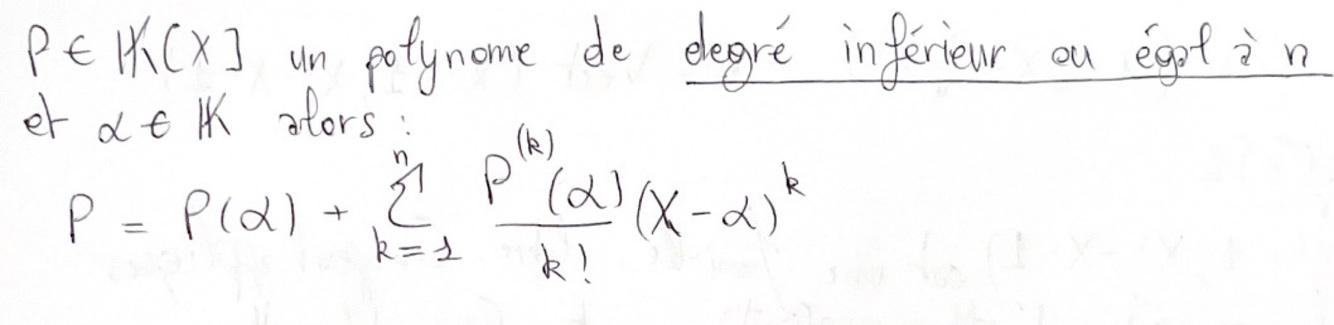 P ∈ 𝕂[X] un polynome de degré inférieur ou égal à n
et α ∈ 𝕂 alors :
P = P(α) + \sum_{k=1}^{n} \frac{P^{(k)}(α)}{k!} (X-α)^k